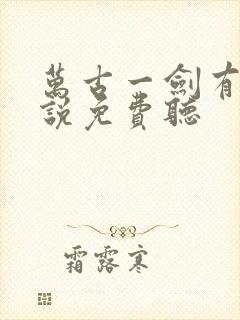 萬古一劍有
說免費聽
霜露寒